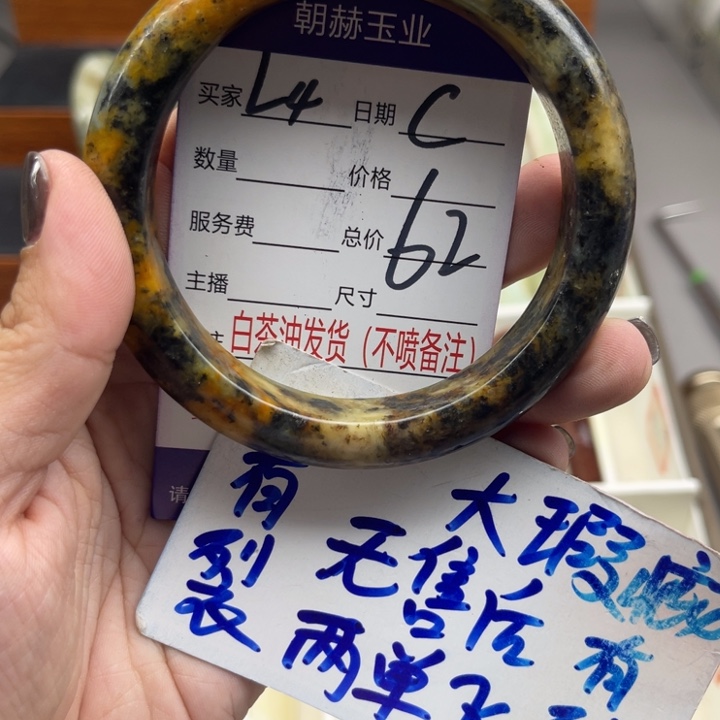 朝赫玉业
买家 L4 日期 C
数量 价格
服务费 总价 62
主播 尺寸
白茶油发货（不喷备注）
请
有裂
大瑕疵有
无售后
两单